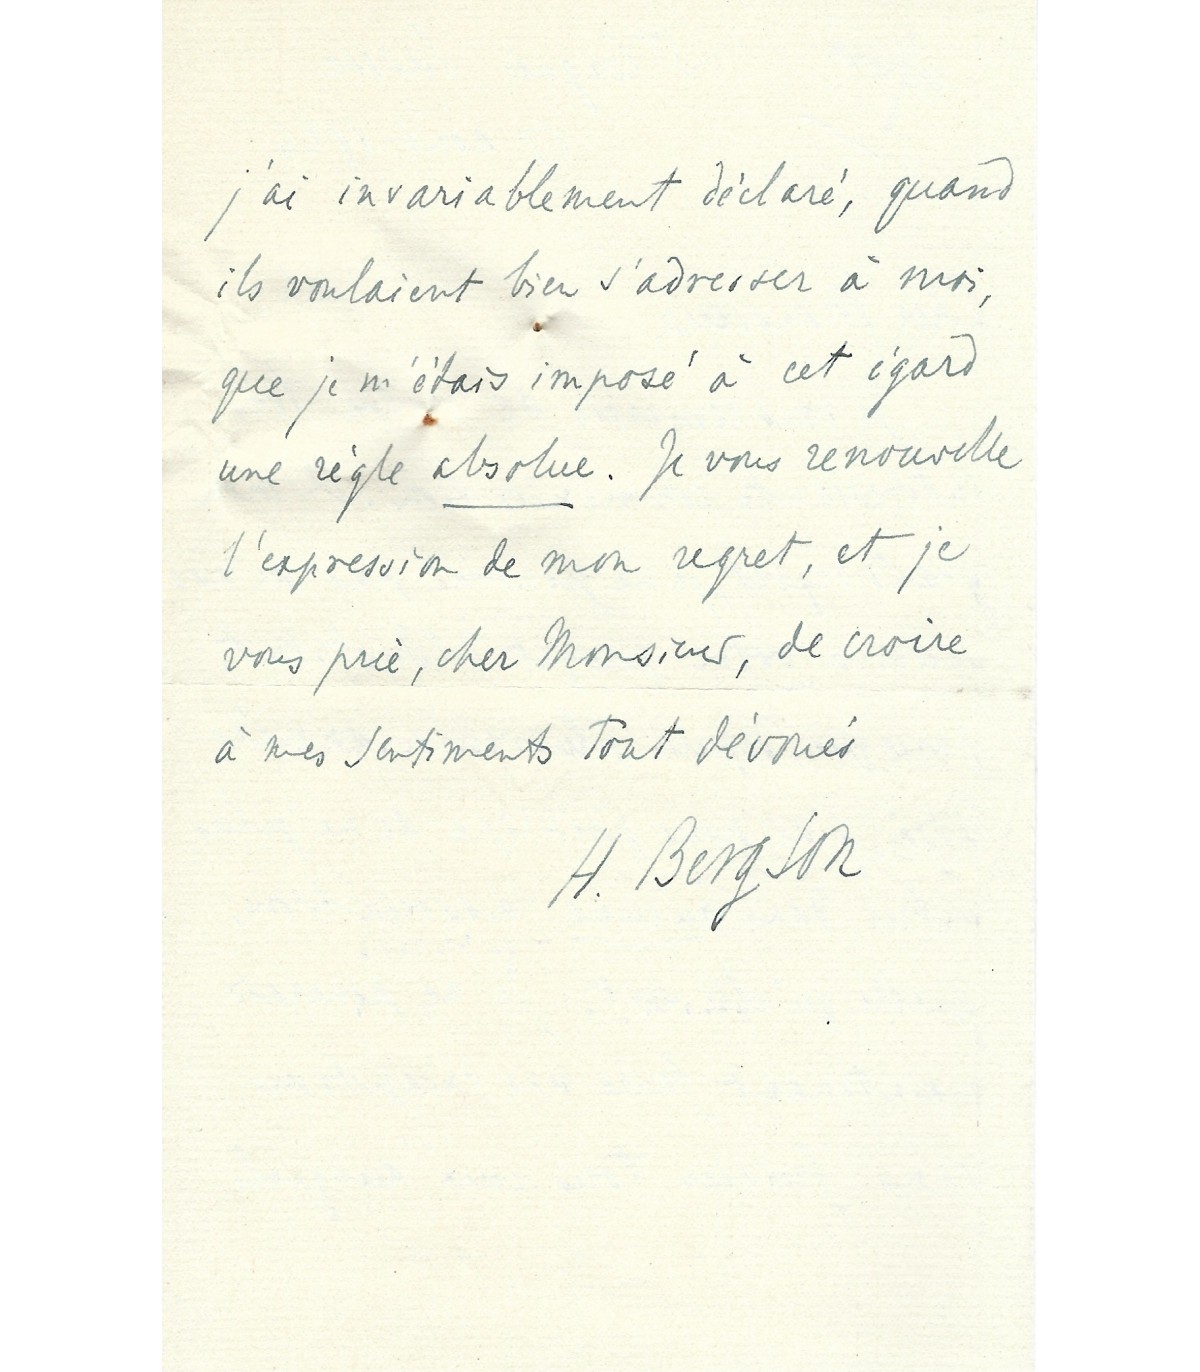 j'ai invariablement déclaré, quand
ils voulaient bien s'adresser à moi,
que je m'étais imposé à cet égard
une règle absolue. Je vous renouvelle
l'expression de mon regret, et je
vous prie, cher Monsieur, de croire
à mes sentiments tout dévoués
H. Bergson